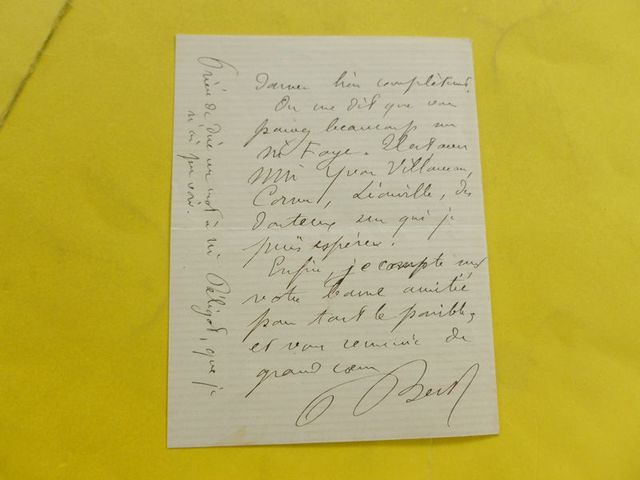 donner bien complètement.
On me dit que vous
pouvez beaucoup sur
Mr Faye. Il est avec
MM Yvon Villarceau,
Cornu, Liouville, des
douteux sur qui je
puis espérer.
Enfin, je compte sur
votre bonne amitié
pour tout le possible,
et vous remercie de
grand cœur
P Bert
Prière de dire un mot à Mr Péligot, que je
n'ai pu voir.